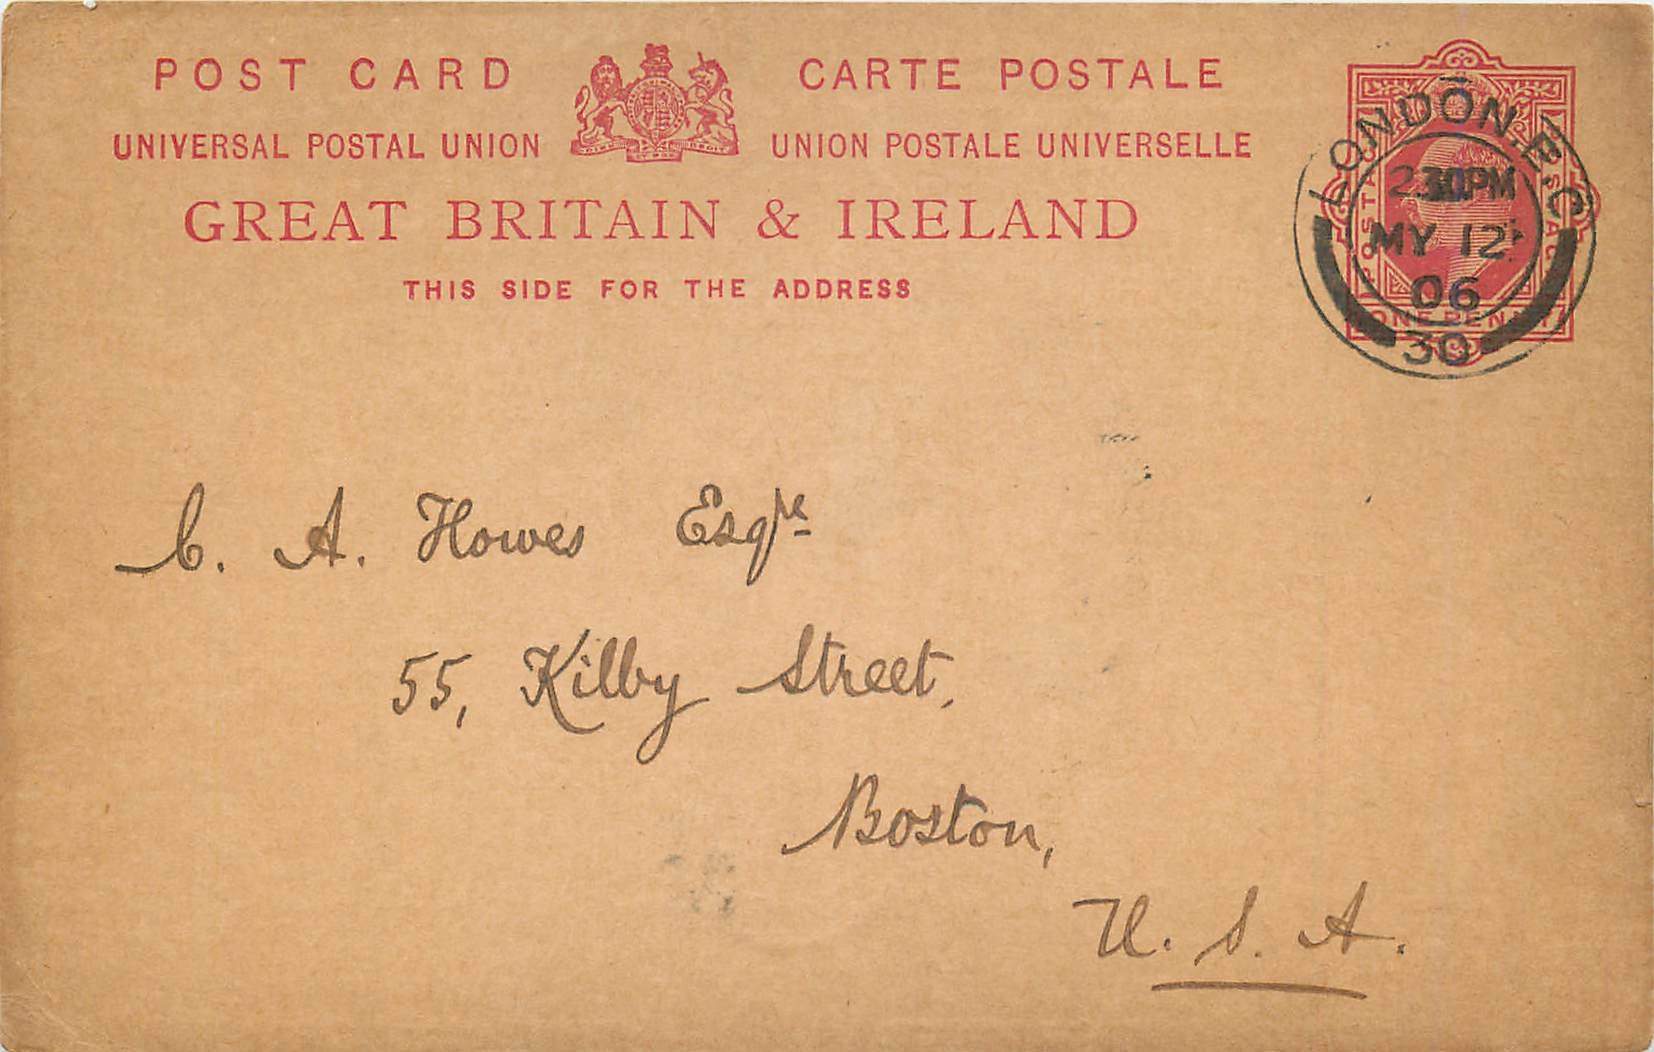 POST CARD CARTE POSTALE
UNIVERSAL POSTAL UNION UNION POSTALE UNIVERSELLE
GREAT BRITAIN & IRELAND
THIS SIDE FOR THE ADDRESS
LONDON. E.C
2.30PM
MY 12
06
30
POSTAGE
ONE PENNY
C. A. Howes Esqre
55, Kilby Street,
Boston,
U. S. A.